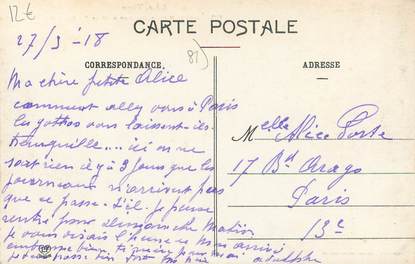 12€
27/3-18
CARTE POSTALE
81)
CORRESPONDANCE
ADRESSE
Ma chère petite Alice
comment allez vous à Paris
les gothas vous laissent-ils
tranquille.... ici on ne
sait rien il y à 3 jours que les
journeaux n'arrivent pas
que ce passe-t'il. je pense
rentré pour dimanche matin
je vous
bien
Melle Alice Porte
17 Bd Arago
Paris
13e
adolphe